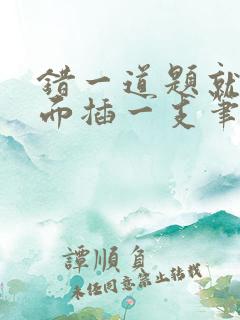 錯一道題就
而插一支筆
譚順負
未任同意禁止转载